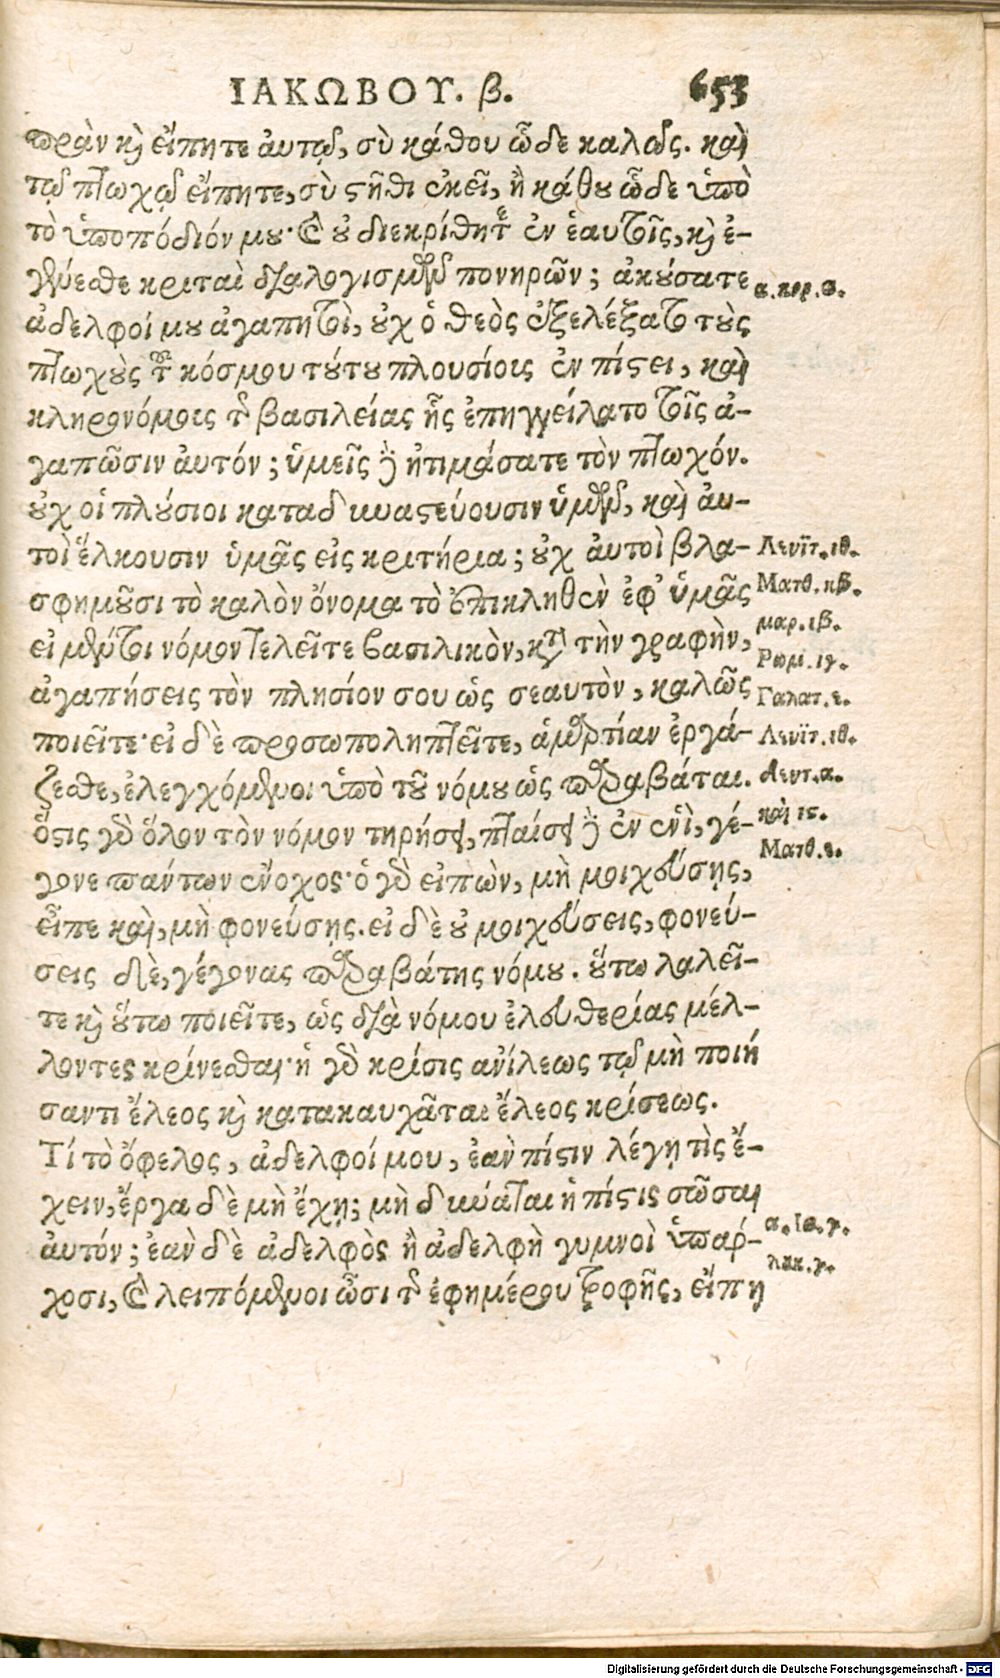 ΙΑΚΩΒΟΥ. β. 653
πρὰν καὶ εἴπητε ἀυτῷ, σὺ κάθου ὧδε καλῶς. καὶ
τῷ πτωχῷ εἴπητε, σὺ στῆθι ἐκεῖ, ἢ κάθου ὧδε ὑπὸ
τὸ ὑποπόδιόν μου· καὶ οὐ διεκρίθητε ἐν ἑαυτοῖς, καὶ ἐ-
γένεσθε κριταὶ διαλογισμῶν πονηρῶν; ἀκούσατε
ἀδελφοί μου ἀγαπητοὶ, οὐχ ὁ θεὸς ἐξελέξατο τοὺς
πτωχοὺς τοῦ κόσμου τούτου πλουσίοις ἐν πίστει, καὶ
κληρονόμοις τῆς βασιλείας ἧς ἐπηγγείλατο τοῖς ἀ-
γαπῶσιν ἀυτόν; ὑμεῖς δὲ ἠτιμάσατε τὸν πτωχόν.
οὐχ οἱ πλούσιοι καταδυναστεύουσιν ὑμῶν, καὶ ἀυ-
τοὶ ἕλκουσιν ὑμᾶς εἰς κριτήρια; οὐχ ἀυτοὶ βλα-
σφημοῦσι τὸ καλὸν ὄνομα τὸ ἐπικληθὲν ἐφ' ὑμᾶς
εἰ μέντοι νόμον τελεῖτε βασιλικὸν, κατὰ τὴν γραφὴν,
ἀγαπήσεις τὸν πλησίον σου ὡς σεαυτὸν, καλῶς
ποιεῖτε· εἰ δὲ προσωποληπτεῖτε, ἁμαρτίαν ἐργά-
ζεσθε, ἐλεγχόμενοι ὑπὸ τοῦ νόμου ὡς παραβάται.
ὅστις γὰρ ὅλον τὸν νόμον τηρήσει, πταίσει δὲ ἐν ἑνὶ, γέ-
γονε πάντων ἔνοχος· ὁ γὰρ εἰπὼν, μὴ μοιχεύσης,
εἶπε καὶ, μὴ φονεύσῃς. εἰ δὲ οὐ μοιχεύσεις, φονεύ-
σεις δὲ, γέγονας παραβάτης νόμου. οὕτω λαλεῖ-
τε καὶ οὕτω ποιεῖτε, ὡς διὰ νόμου ἐλευθερίας μέλ-
λοντες κρίνεσθαι· ἡ γὰρ κρίσις ἀνίλεως τῷ μὴ ποιή
σαντι ἔλεος καὶ κατακαυχᾶται ἔλεος κρίσεως.
Τί τὸ ὄφελος, ἀδελφοί μου, ἐὰν πίστιν λέγῃ τὶς ἔ-
χειν, ἔργα δὲ μὴ ἔχῃ; μὴ δύναται ἡ πίστις σῶσαι
ἀυτόν; ἐὰν δὲ ἀδελφὸς ἢ ἀδελφὴ γυμνοὶ ὑπάρ-
χοσι, καὶ λειπόμενοι ὦσι τῆς ἐφημέρου τροφῆς, εἴπη
α. κορ. α.
Λευϊτ. ιθ.
Ματθ. κβ.
μαρ. ιβ.
Ρωμ. ιγ.
Γαλατ. ε.
Λευϊτ. ιθ.
Δευτ. α.
καὶ ις.
Ματθ. ε.
α. Ιω. γ.
λουκ. γ.
Digitalisierung gefördert durch die Deutsche Forschungsgemeinschaft - DFG